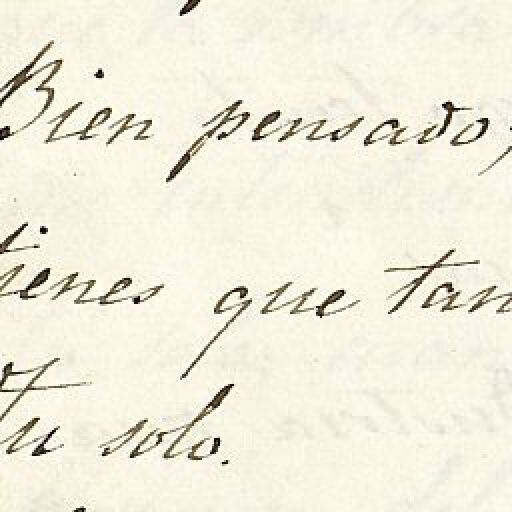 Bien pensado;
tienes que tan
tu solo.